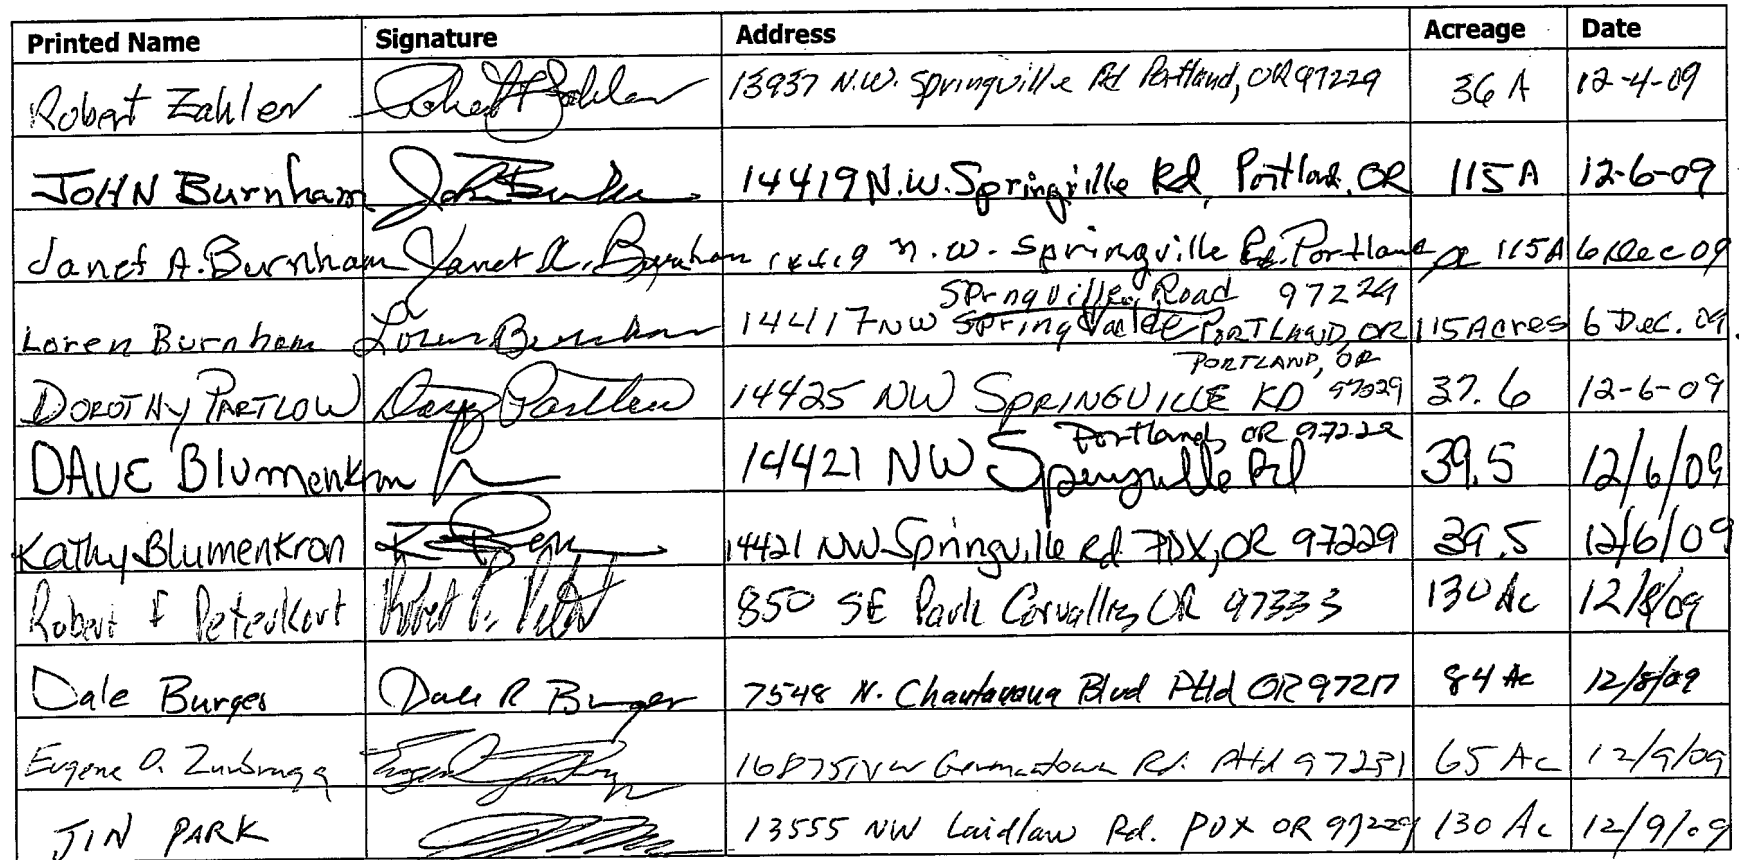 Printed Name Signature Address Acreage Date
Robert Zahler Robert Zahler 13937 N.W. Springville Rd Portland, OR 97229 36 A 12-4-09
JOHN Burnham John Burnham 14419 N.W. Springville Rd, Portland, OR 115 A 12-6-09
Janet A. Burnham Janet A. Burnham 14419 N.W. Springville Rd. Portland 115A 6 Dec 09
Springville Road 97229
Loren Burnham Loren Burnham 14417 NW PORTLAND, OR 115 Acres 6 Dec. 09.
PORTLAND, OR
DOROTHY PARTLOW Partlow 14425 NW SPRINGVILLE RD 97229 37.6 12-6-09
Portland, OR 97229
DAVE Blumenkron 14421 NW Springville Rd 39.5 12/6/09
Kathy Blumenkron 14421 NW Springville Rd PDX, OR 97229 39.5 12/6/09
Robert F Peterkort 850 SE Park Corvallis, OR 97333 130 Ac 12/8/09
Dale Burger Dale R Burger 7548 N. Chautauqua Blvd Ptld OR 97217 84 Ac 12/8/09
Eugene O. Zurbrugg 16875 NW Germantown Rd. Ptld 97231 65 Ac 12/9/09
JIN PARK 13555 NW Laidlaw Rd. PDX OR 97229 130 Ac 12/9/09